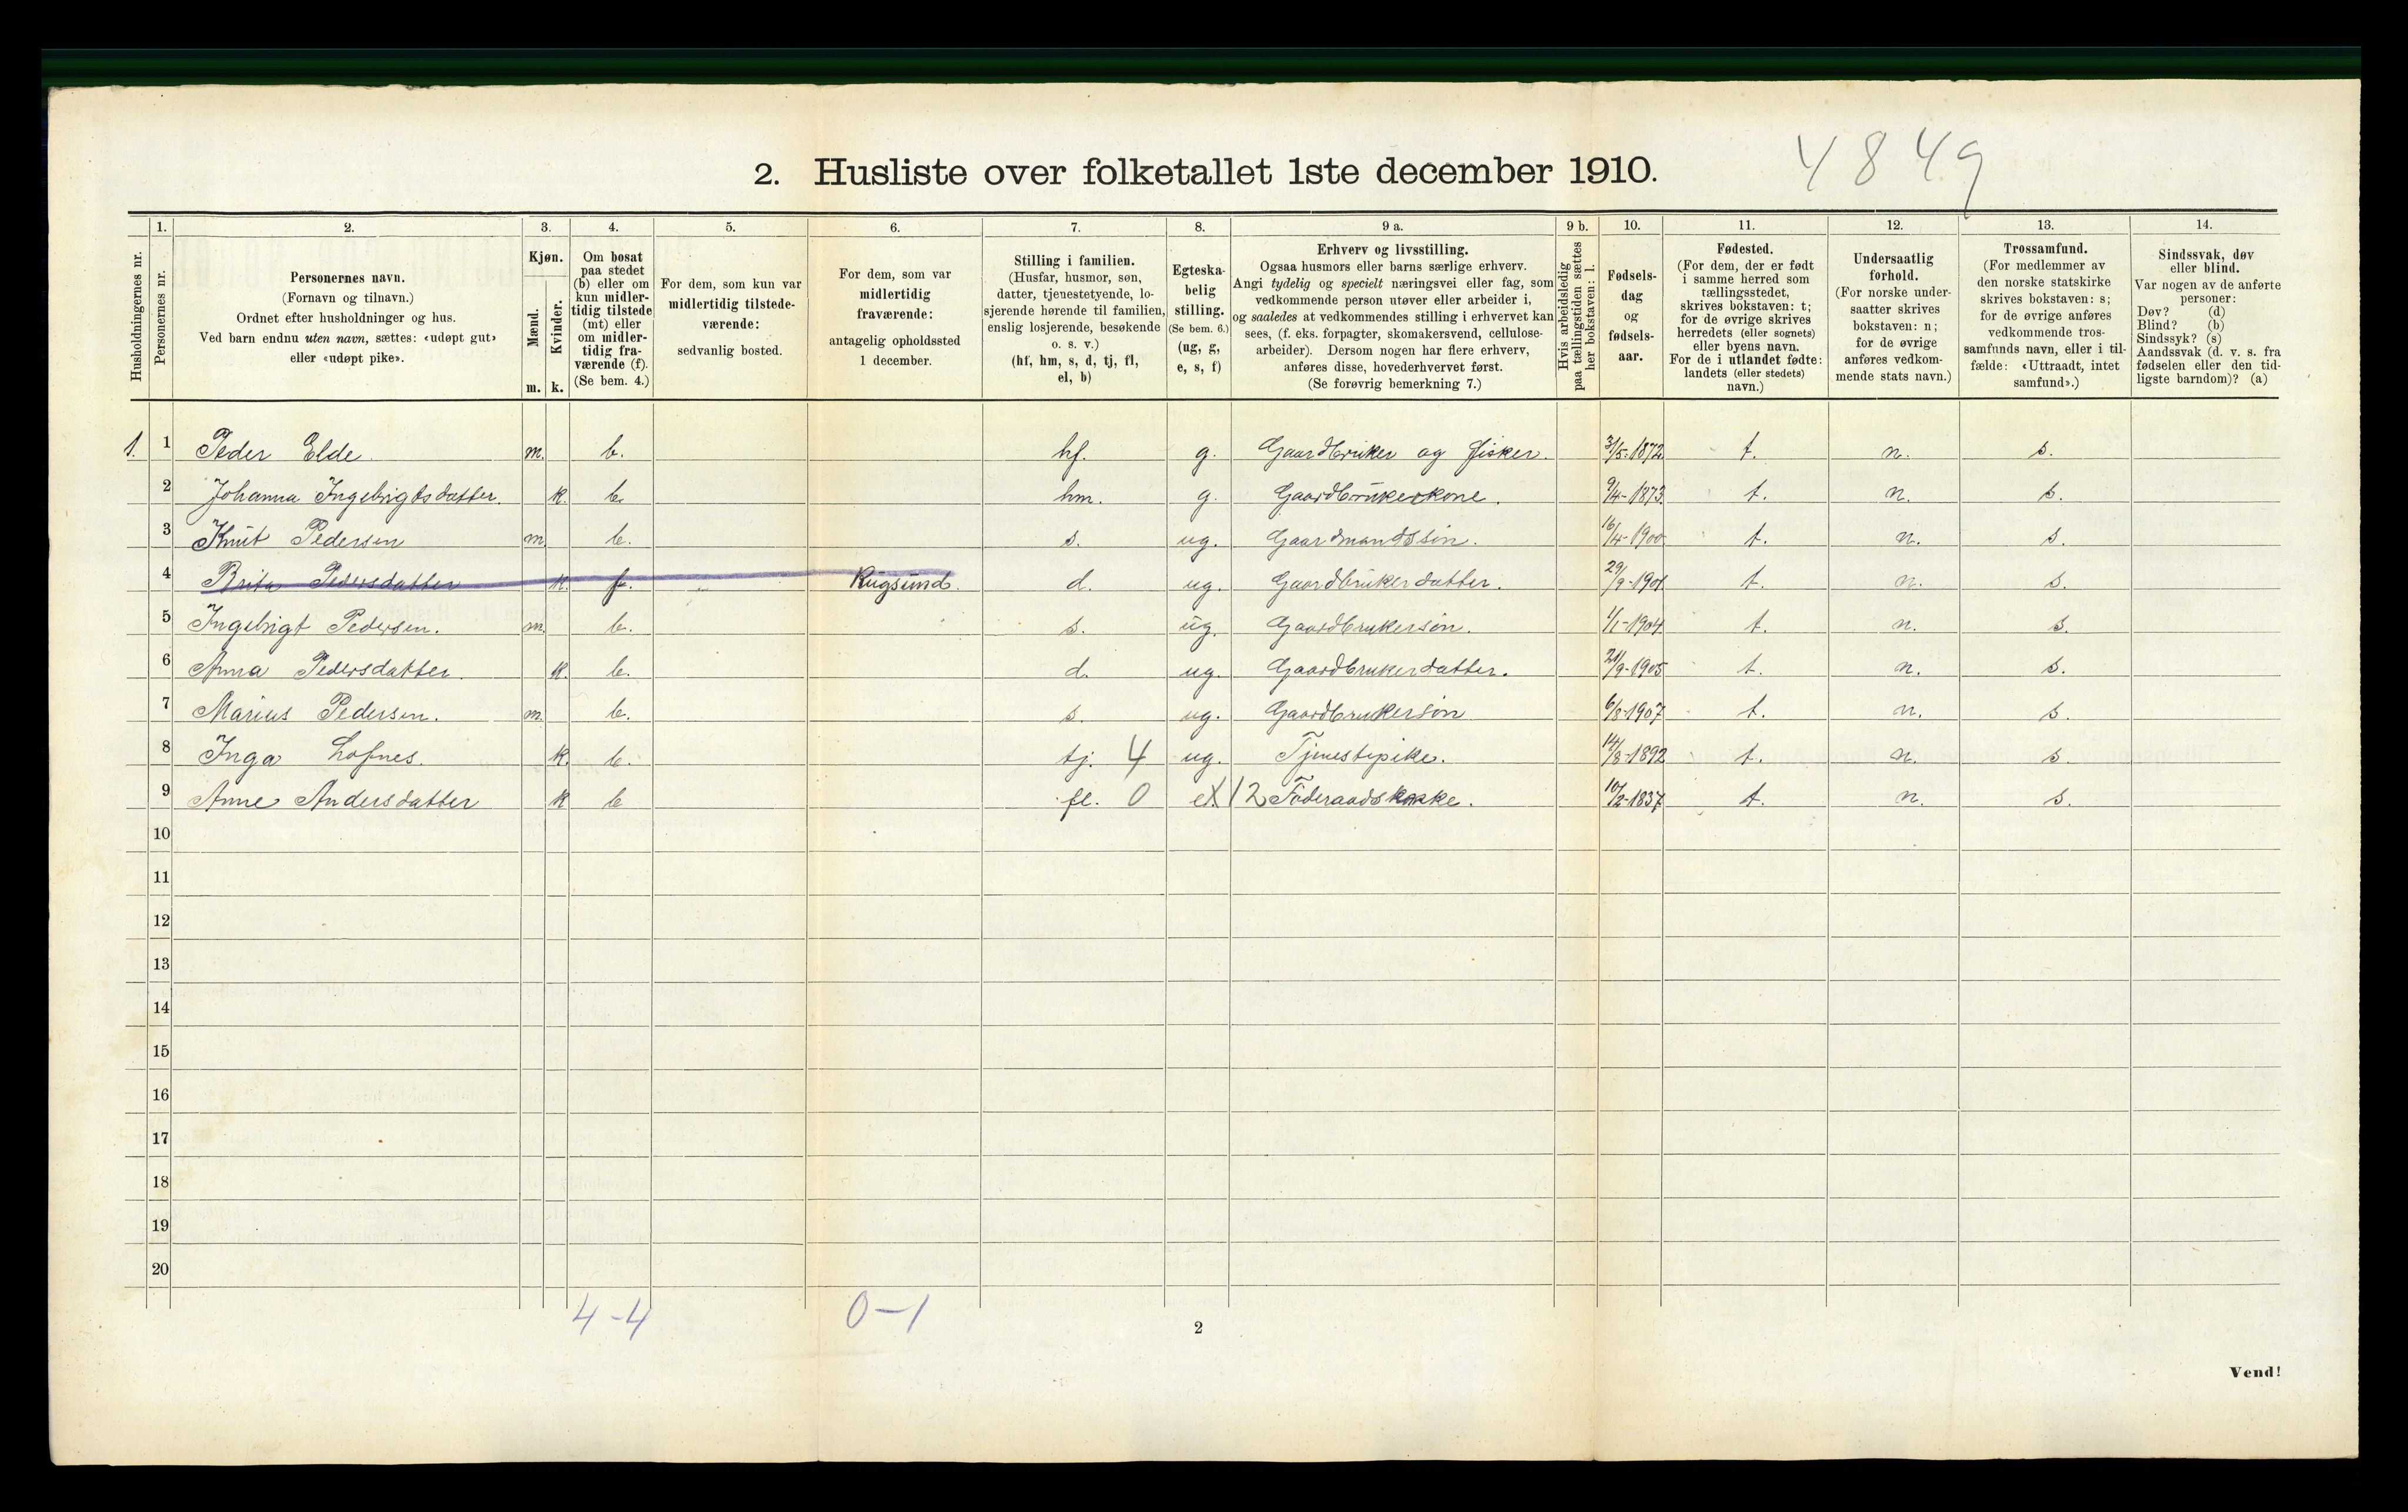 4849
2. Husliste over folketallet 1ste december 1910.
Husholdningernes nr.
1. Personernes nr.
2. Personernes navn. (Fornavn og tilnavn.) Ordnet efter husholdninger og hus. Ved barn endnu uten navn, sættes: «udøpt gut» eller «udøpt pike».
3. Kjøn. Mænd. m. Kvinder. k.
4. Om bosat paa stedet (b) eller om kun midlertidig tilstede (mt) eller om midlertidig fraværende (f). (Se bem. 4.)
5. For dem, som kun var midlertidig tilstedeværende: sedvanlig bosted.
6. For dem, som var midlertidig fraværende: antagelig opholdssted 1 december.
7. Stilling i familien. (Husfar, husmor, søn, datter, tjenestetyende, losjerende hørende til familien, enslig losjerende, besøkende o. s. v.) (hf, hm, s, d, tj, fl, el, b)
8. Egteskabelig stilling. (Se bem. 6.) (ug, g, e, s, f)
9 a. Erhverv og livsstilling. Ogsaa husmors eller barns særlige erhverv. Angi tydelig og specielt næringsvei eller fag, som vedkommende person utøver eller arbeider i, og saaledes at vedkommendes stilling i erhvervet kan sees, (f. eks. forpagter, skomakersvend, cellulosearbeider). Dersom nogen har flere erhverv, anføres disse, hovederhvervet først. (Se forøvrig bemerkning 7.)
9 b. Hvis arbeidsledig paa tællingstiden sættes her bokstaven: l.
10. Fødselsdag og fødselsaar.
11. Fødested. (For dem, der er født i samme herred som tællingsstedet, skrives bokstaven: t; for de øvrige skrives herredets (eller sognets) eller byens navn. For de i utlandet fødte: landets (eller stedets) navn.)
12. Undersaatlig forhold. (For norske undersaatter skrives bokstaven: n; for de øvrige anføres vedkommende stats navn.)
13. Trossamfund. (For medlemmer av den norske statskirke skrives bokstaven: s; for de øvrige anføres vedkommende trossamfunds navn, eller i tilfælde: «Uttraadt, intet samfund».)
14. Sindssvak, døv eller blind. Var nogen av de anførte personer: Døv? (d) Blind? (b) Sindssyk? (s) Aandssvak (d. v. s. fra fødselen eller den tidligste barndom)? (a)
1. 1 Peder Elde. m. b. hf. g. Gaardbruker og fisker. 3/5-1872 t. n. s.
2 Johanna Ingebrigtsdatter. k. b. hm. g. Gaardbrukerkone. 9/4-1873 t. n. s.
3 Knut Pedersen m. b. s. ug. Gaardmandssøn. 16/4-1900 t. n. s.
4 Brita Pedersdatter k. f. Rugsund. d. ug. Gaardbrukerdatter. 29/9-1901 t. n. s.
5 Ingebrigt Pedersen. m. b. s. ug. Gaardbrukersøn. 1/1-1904 t. n. s.
6 Anna Pedersdatter. k. b. d. ug. Gaardbrukerdatter. 21/9-1905 t. n. s.
7 Marius Pedersen. m. b. s. ug. Gaardbrukersøn 6/8-1907 t. n. s.
8 Inga Lofnes. k. b. tj. 4 ug. Tjenestepike. 14/8-1892 t. n. s.
9 Anne Andersdatter k b fl. 0 12 10/2-1837 t. n. s.
10
11
12
13
14
15
16
17
18
19
20
4-4 0-1
2
Vend!